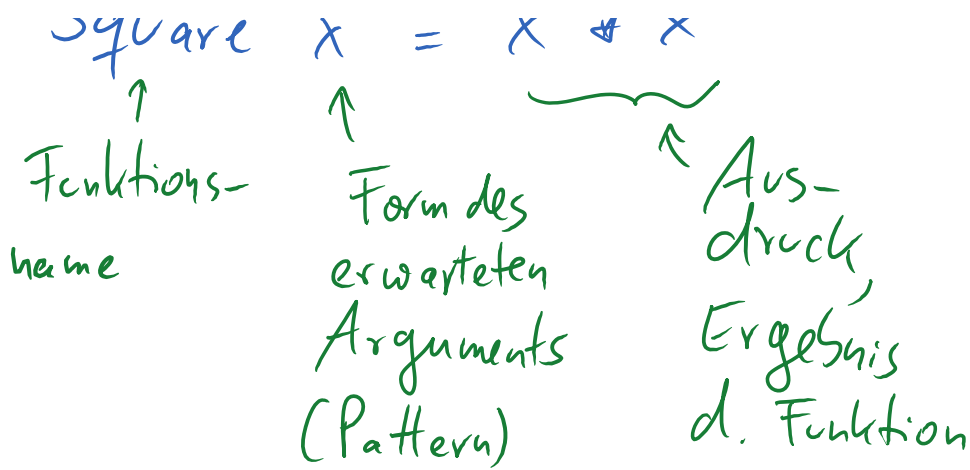 square x = x * x
Funktions-
name
Form des
erwarteten
Arguments
(Pattern)
Aus-
druck,
Ergebnis
d. Funktion